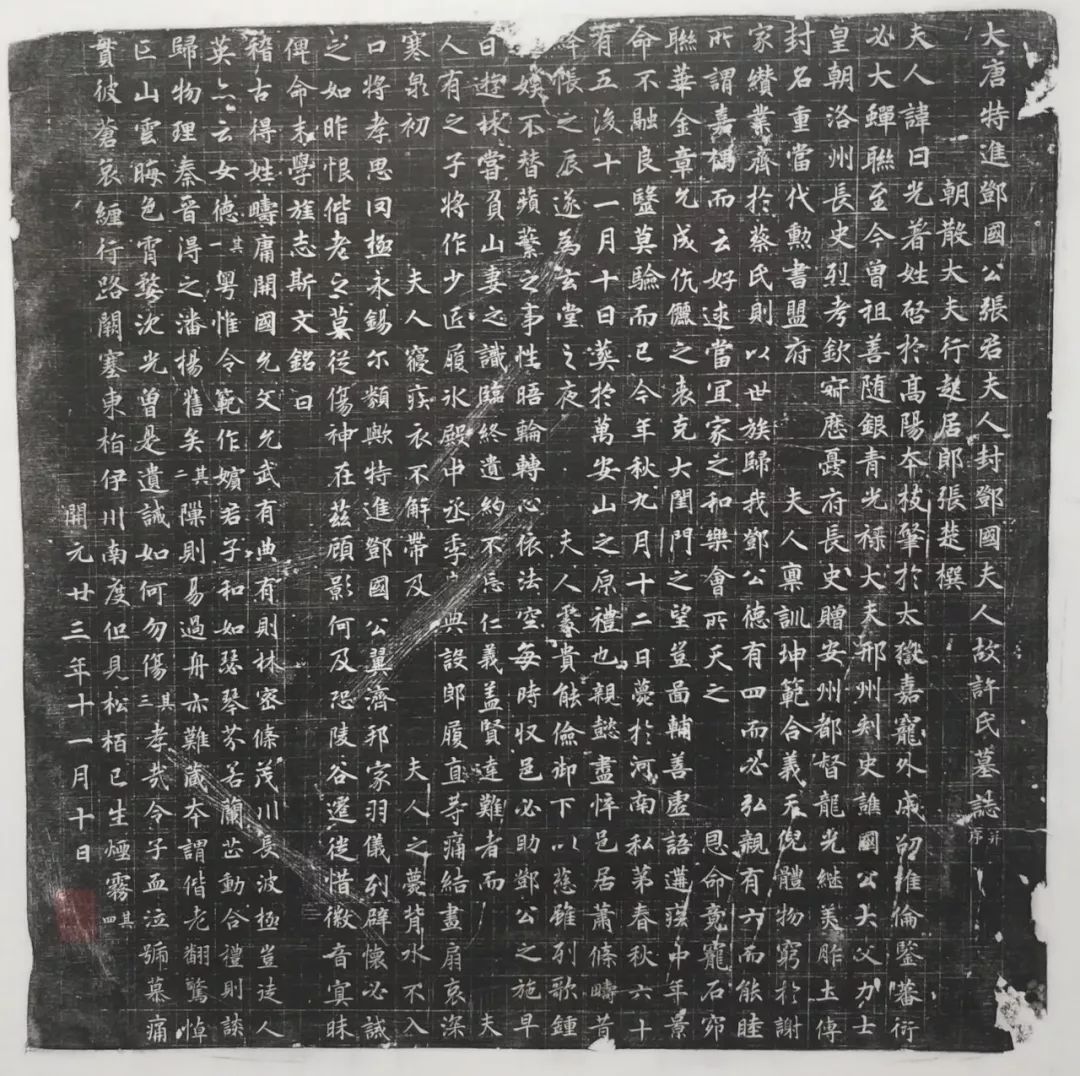 大唐特進鄧國公張君夫人封鄧國夫人故許氏墓誌并序
朝散大夫行起居郎張楚撰
夫人諱日光著姓啓於高陽夲枝肇於太嶽嘉寵外戚卲雄倫鑒蕃衍
必大蟬聯至今曾祖善随銀青光祿大夫邢州刾史譙國公大父力士
皇朝洛州長史烈考欽寂應夔府長史贈安州都督龍光継美胙土傳
封名重當代勲書盟府　夫人禀訓坤範合義天倪體物窮於謝
家纘業齊於蔡氏則以世族歸我鄧公德有四而必弘親有六而能睦
所謂嘉耦而云好逑當宜家之和樂會所天之　恩命竟寵石窌
聯華金章允成伉儷之表克大閨門之望豈啚輔善虛語遘疾中年景
命不融良毉莫驗而已今年秋九月十二日薨於河南私苐春秋六十
有五浚十一月十日葬於萬安山之原禮也親懿盡悴邑居蕭條疇昔
帳之辰遂為玄堂之夜　夫人繄貴能儉御下以慈雖列歌鍾
娛不替蘋蘩之事性晤輪轉心依法空每時収邑必助鄧公之施早
日遊林嘗負山妻之識臨終遺約不忘仁義盖賢達難者而　夫
人有之子將作少匠履氷殿中丞季　典設郎履直䓁痛結晝扇哀深
寒泉初　夫人寢疾衣不解帶及　夫人之薨背水不入
口將孝思罔極永錫尔類歟特進鄧國公翼濟邦家羽儀列辟懷必誠
之如昨恨偕老之莫從傷神在兹顧影何及恐陵谷遷徙惜徽音寘昧
俾命末學旌志斯文銘曰
稽古得姓疇庸開國允文允武有典有則林密條茂川長波極豈徒人
英亦云女德其一粵惟令範作嬪君子和如瑟琴芬若蘭芷動合禮則談
歸物理秦晉得之潘揚舊矣其二隟則易過舟亦難藏夲謂偕老翻驚悼
亡山雲晦色霄婺沈光曾是遺誡如何勿傷其三孝哉令子血泣號慕痛
貫彼蒼哀纏行路闕塞東栺伊川南度但見松栢已生煙霧其四
開元廿三年十一月十日